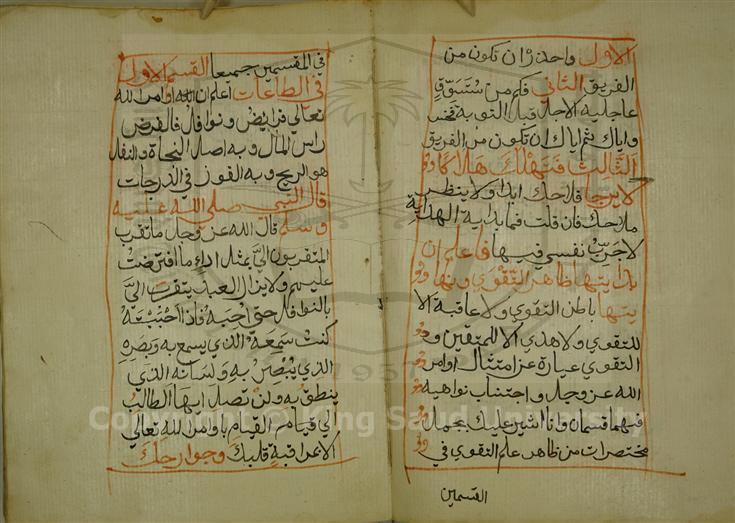 الاول واحذر ان تكون من
الفريق الثاني فكم من متسوف
عاجليه الاجل قبل التوبة فخسر
واياك ثم اياك ان تكون من الفريق
الثالث فتهلك هلاكا
لا يرجا فلاحك ابدا ولا ينتظر
صلاحك فان قلت فما بداية الهداية
لاجرب نفسي فيها فاعلم ان
بدايتها ظاهر التقوي ونها
يتها باطن التقوي ولا عاقبة الا
للتقوي ولا هدي الا للمتقين و
التقوي عبارة عن امتثال اوامر
الله عز وجل واجتناب نواهيه
فهما قسمان وانا اشير عليك بجمل
مختصرات من ظاهر علم التقوي في
القسمين
في القسمين جميعا القسم الاول
في الطاعات اعلم ان الله اوامر الله
تعالي فرايض ونوافل فالفرض
راس المال وبه اصل النجاة والنفل
هو الربح وبه الفوز في الدرجات
قال النبي صلي الله عليه
وسلم قال الله عز وجل ما تقرب
المتقربون الي بمثل اداء ما افترضت
عليهم ولا يزال العبد يتقرب الي
بالنوافل حتي احبه فاذا احببته
كنت سمعه الذي يسمع به وبصره
الذي يبصر به ولسانه الذي
ينطق به ولن تصل ايها الطالب
الي قيام القيام باوامر الله تعالي
الا بمراقبة قلبك وجوارحك
Copyright © King Saud University
1957